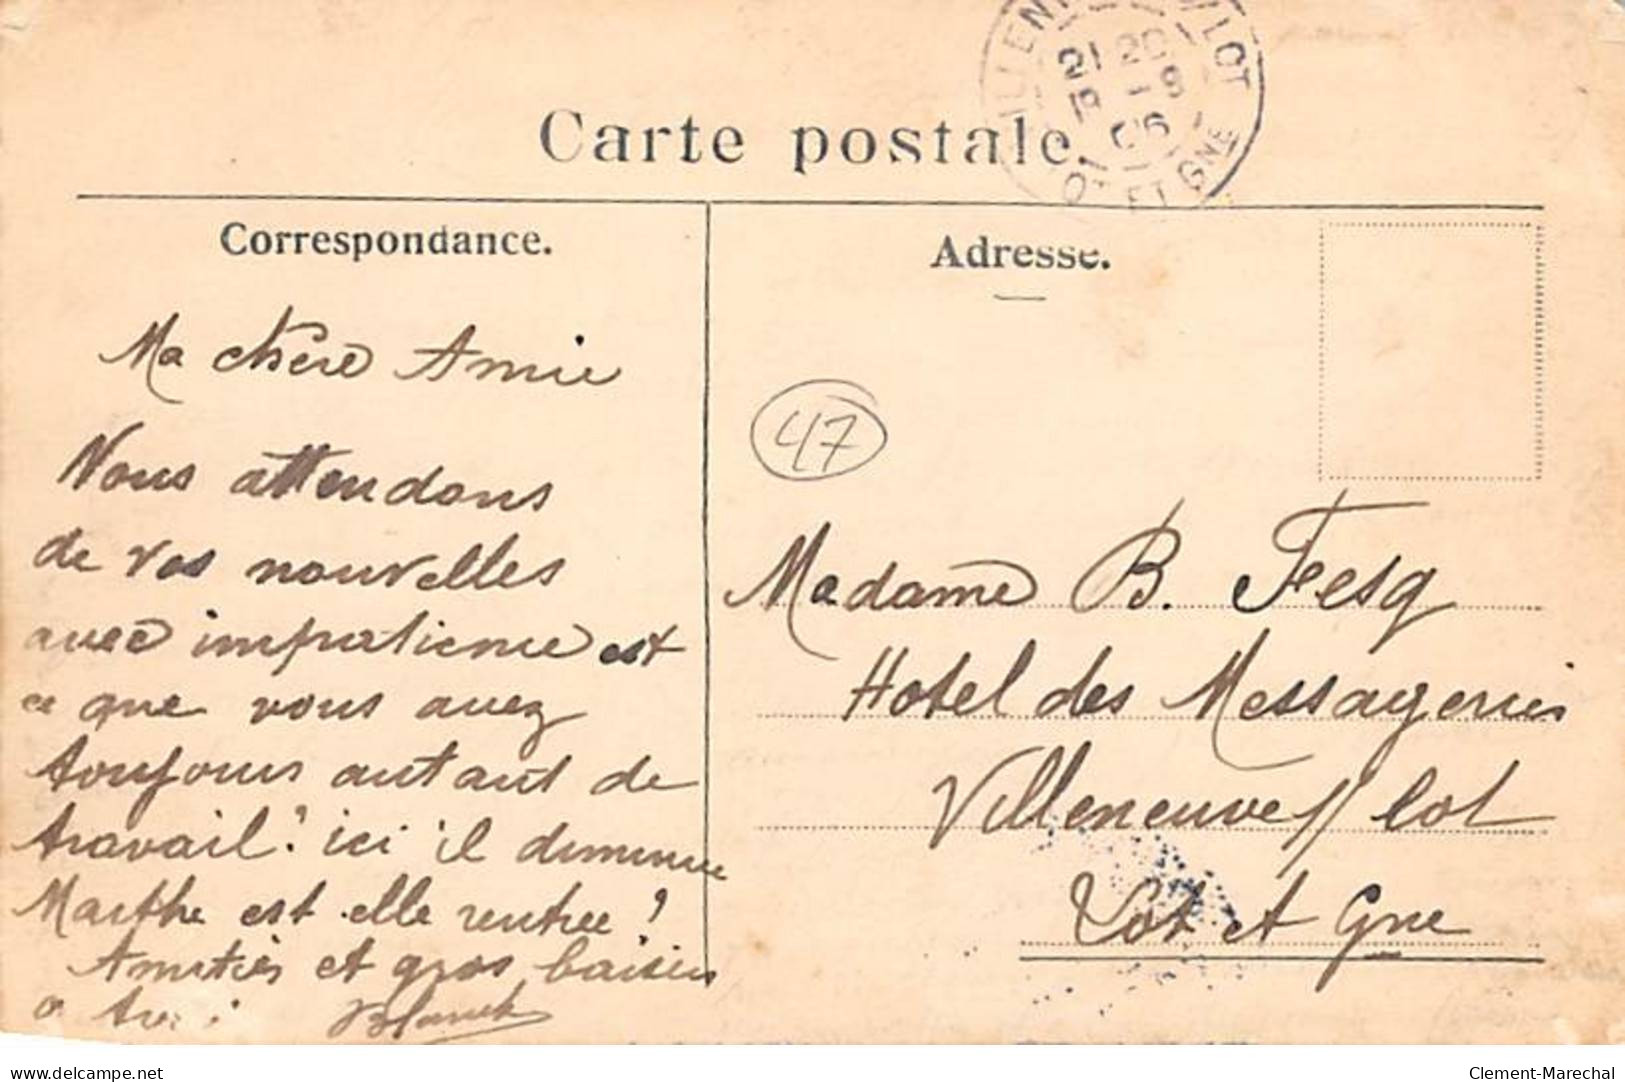 Carte postale
LOT
21 20
8 -8
06
ET GNE
Correspondance.
Adresse.
Ma chère Amie
Nous attendons
de vos nouvelles
avec impatience est
ce que vous avez
toujours autant de
travail? ici il diminue
Marthe est elle rentrée?
Amitiés et gros baisers
Blanche
47
Madame B. Fesq
Hotel des Messageries
Villeneuve s/ Lot
Lot et Gne
delcampe.net
Clement-Marechal